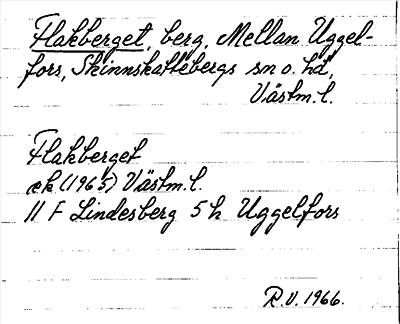 Flakberget, berg, Mellan Uggel-
fors, Skinnskattebergs sn o. hd,
Västm. l.
Flakberget
ek (1965) Västm. l.
11 F Lindesberg 5 h Uggelfors
R.V. 1966.